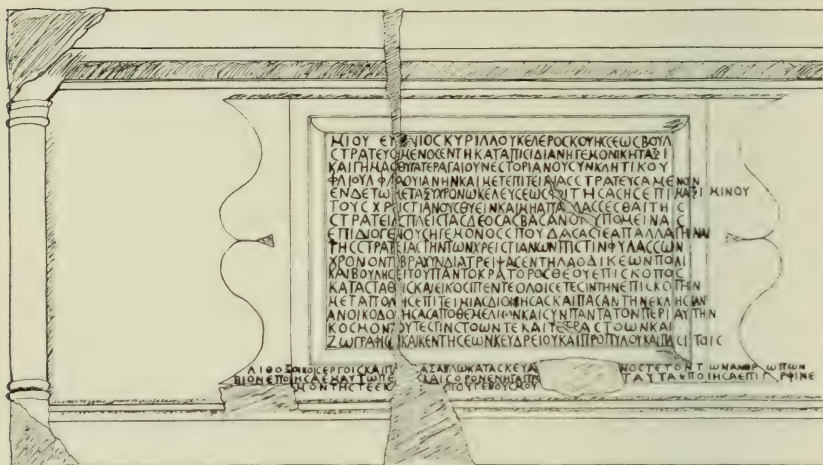 ΜΙΟΥ ΕΥΓΕΝΙΟCΚΥΡΙΛΛΟΥΚΕΛΕΡΟCΚΟΥΗCΕωCΒΟΥΛ
CΤΡΑΤΕΥCΑΜΕΝΟCΕΝΤΗΚΑΤΑΠΙCΙΔΙΑΝΗΓΕΜΟΝΙΚΗΤΑΞΙ
ΚΑΙΓΗΜΑCΘΥΓΑΤΕΡΑΓΑΙΟΥΝΕCΤΟΡΙΑΝΟΥCΥΝΚΛΗΤΙΚΟΥ
ΦΛΙΟΥΛΦΛΑΟΥΙΑΝΗΝΚΑΙΜΕΤΕΠΙΤΕΙΜΑCCΤΡΑΤΕΥCΑΜΕΝΟC
ΕΝΔΕΤωΜΕΤΑΞΥΧΡΟΝωΚΕΛΕΥCΕωCΦΟΙΤΗCΑCΗCΕΠΙΜΑΞΙΜΙΝΟΥ
ΤΟΥCΧΡΙCΤΙΑΝΟΥCΘΥΕΙΝΚΑΙΜΗΑΠΑΛΛΑCCΕCΘΑΙΤΗC
CΤΡΑΤΕΙΑCΠΛΕΙCΤΑCΔΕΟCΑCΒΑCΑΝΟΥCΥΠΟΜΕΙΝΑC
ΕΠΙΔΙΟΓΕΝΟΥCΗΓΕΜΟΝΟCCΠΟΥΔΑCΑCΤΕΑΠΑΛΛΑΓΗΝΑΙ
ΤΗCCΤΡΑΤΕΙΑCΤΗΝΤωΝΧΡΕΙCΤΙΑΝωΝΠΙCΤΙΝΦΥΛΑCCωΝ
ΧΡΟΝΟΝΤΕΒΡΑΧΥΝΔΙΑΤΡΕΙΨΑCΕΝΤΗΛΑΟΔΙΚΕωΝΠΟΛΙ
ΚΑΙΒΟΥΛΗCΕΙΤΟΥΠΑΝΤΟΚΡΑΤΟΡΟCΘΕΟΥΕΠΙCΚΟΠΟC
ΚΑΤΑCΤΑΘΙCΚΑΙΕΙΚΟCΙΠΕΝΤΕΟΛΟΙCΕΤΕCΙΝΤΗΝΕΠΙCΚΟΠΗΝ
ΜΕΤΑΠΟΛΛΗCΕΠΙΤΕΙΜΙΑCΔΙΟΙΚΗCΑCΚΑΙΠΑCΑΝΤΗΝΕΚΛΗCΙΑΝ
ΑΝΟΙΚΟΔΟΜΗCΑCΑΠΟΘΕΜΕΛΙωΝΚΑΙCΥΝΠΑΝΤΑΤΟΝΠΕΡΙΑΥΤΗΝ
ΚΟCΜΟΝΤΟΥΤΕCΠΙΝCΤΟωΝΤΕΚΑΙΤΕΤΡΑCΤΟωΝΚΑΙ
ΖωΓΡΑΦΙωΝΚΑΙΚΕΝΤΗCΕωΝΚΕΥΔΡΕΙΟΥΚΑΙΠΡΟΠΥΛΟΥΚΑΙΠΑCΙΤΟΙC
ΛΙΘΟΞΟΙΚΟΙCΕΡΓΟΙCΚΑΙΠΑ ΑΞΑΠΛωΚΑΤΑCΚΕΥΑ ΝΟCΤΕΤΟΝΤωΝΑΝΘΡωΠωΝ
ΒΙΟΝΕΠΟΙΗCΑΕΜΑΥΤωΠΕ ΚΑΙCΟΡΟΝΕΝΗ ΤΑΥΤΑΕΠΟΙΗCΑΕΠΙΓΡΦΙΝΕ
ΜΟΝΤΗCΤΕΕΚ ΠΟΥΓΕΝΟΥCΜΟΥ